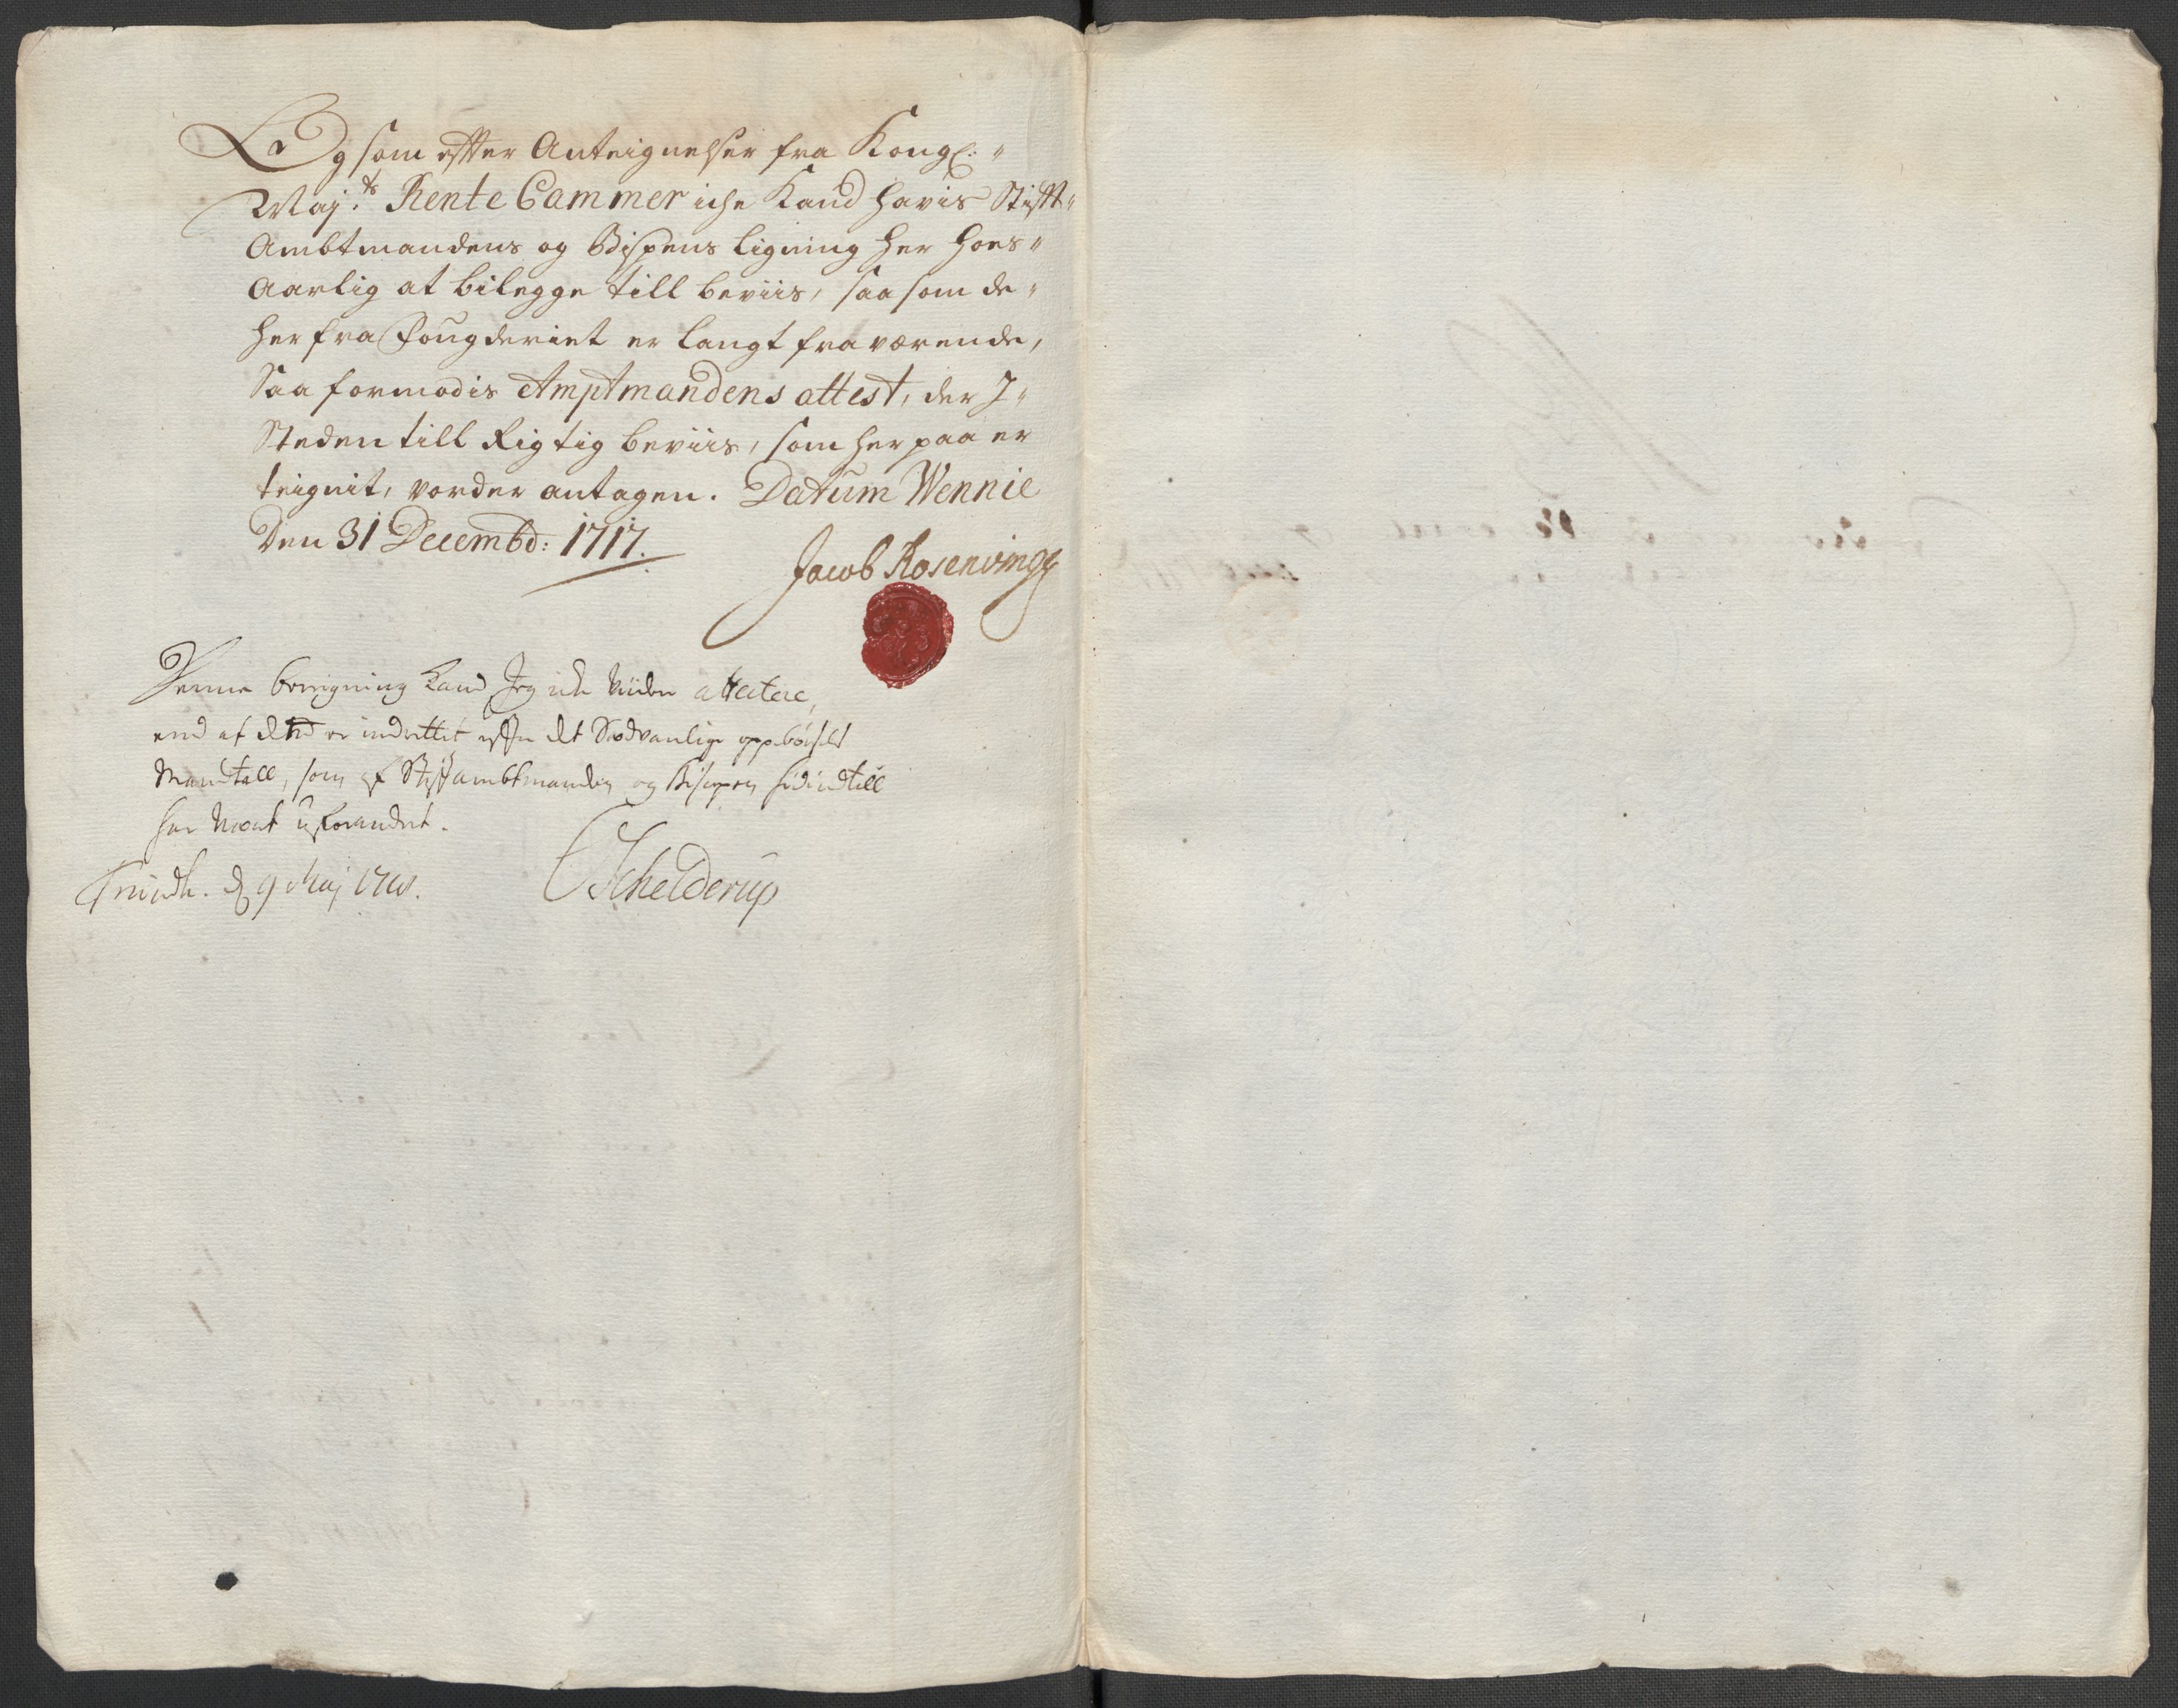 Og som effter Anteignelser fra Kongl:
Maj.ts Rente Cammer iche Kand havis Stifft
Ambtmandens og Bispens Ligning her hoes
Aarlig at bilegge till beviis, saa som de
her fra Fougderiet er langt fraværende,
Saa formodis Amptmandens attest, der J
Steden till Rigtig beviis, som her paa er
teignit, vorder antagen. Datum Wennie
Den 31 Decembd: 1717.
Jacob Rosenvinge
Denne beregning Kand Jeg ich viider attestere,
end at dend er indrettet effter det Sædvanlige oppebørsels
Mandtall, som af Stiftambtmanden og Bispen hidindtill
har været uforandret.
Trundh. d 9 Maj 1718.
Schelderup